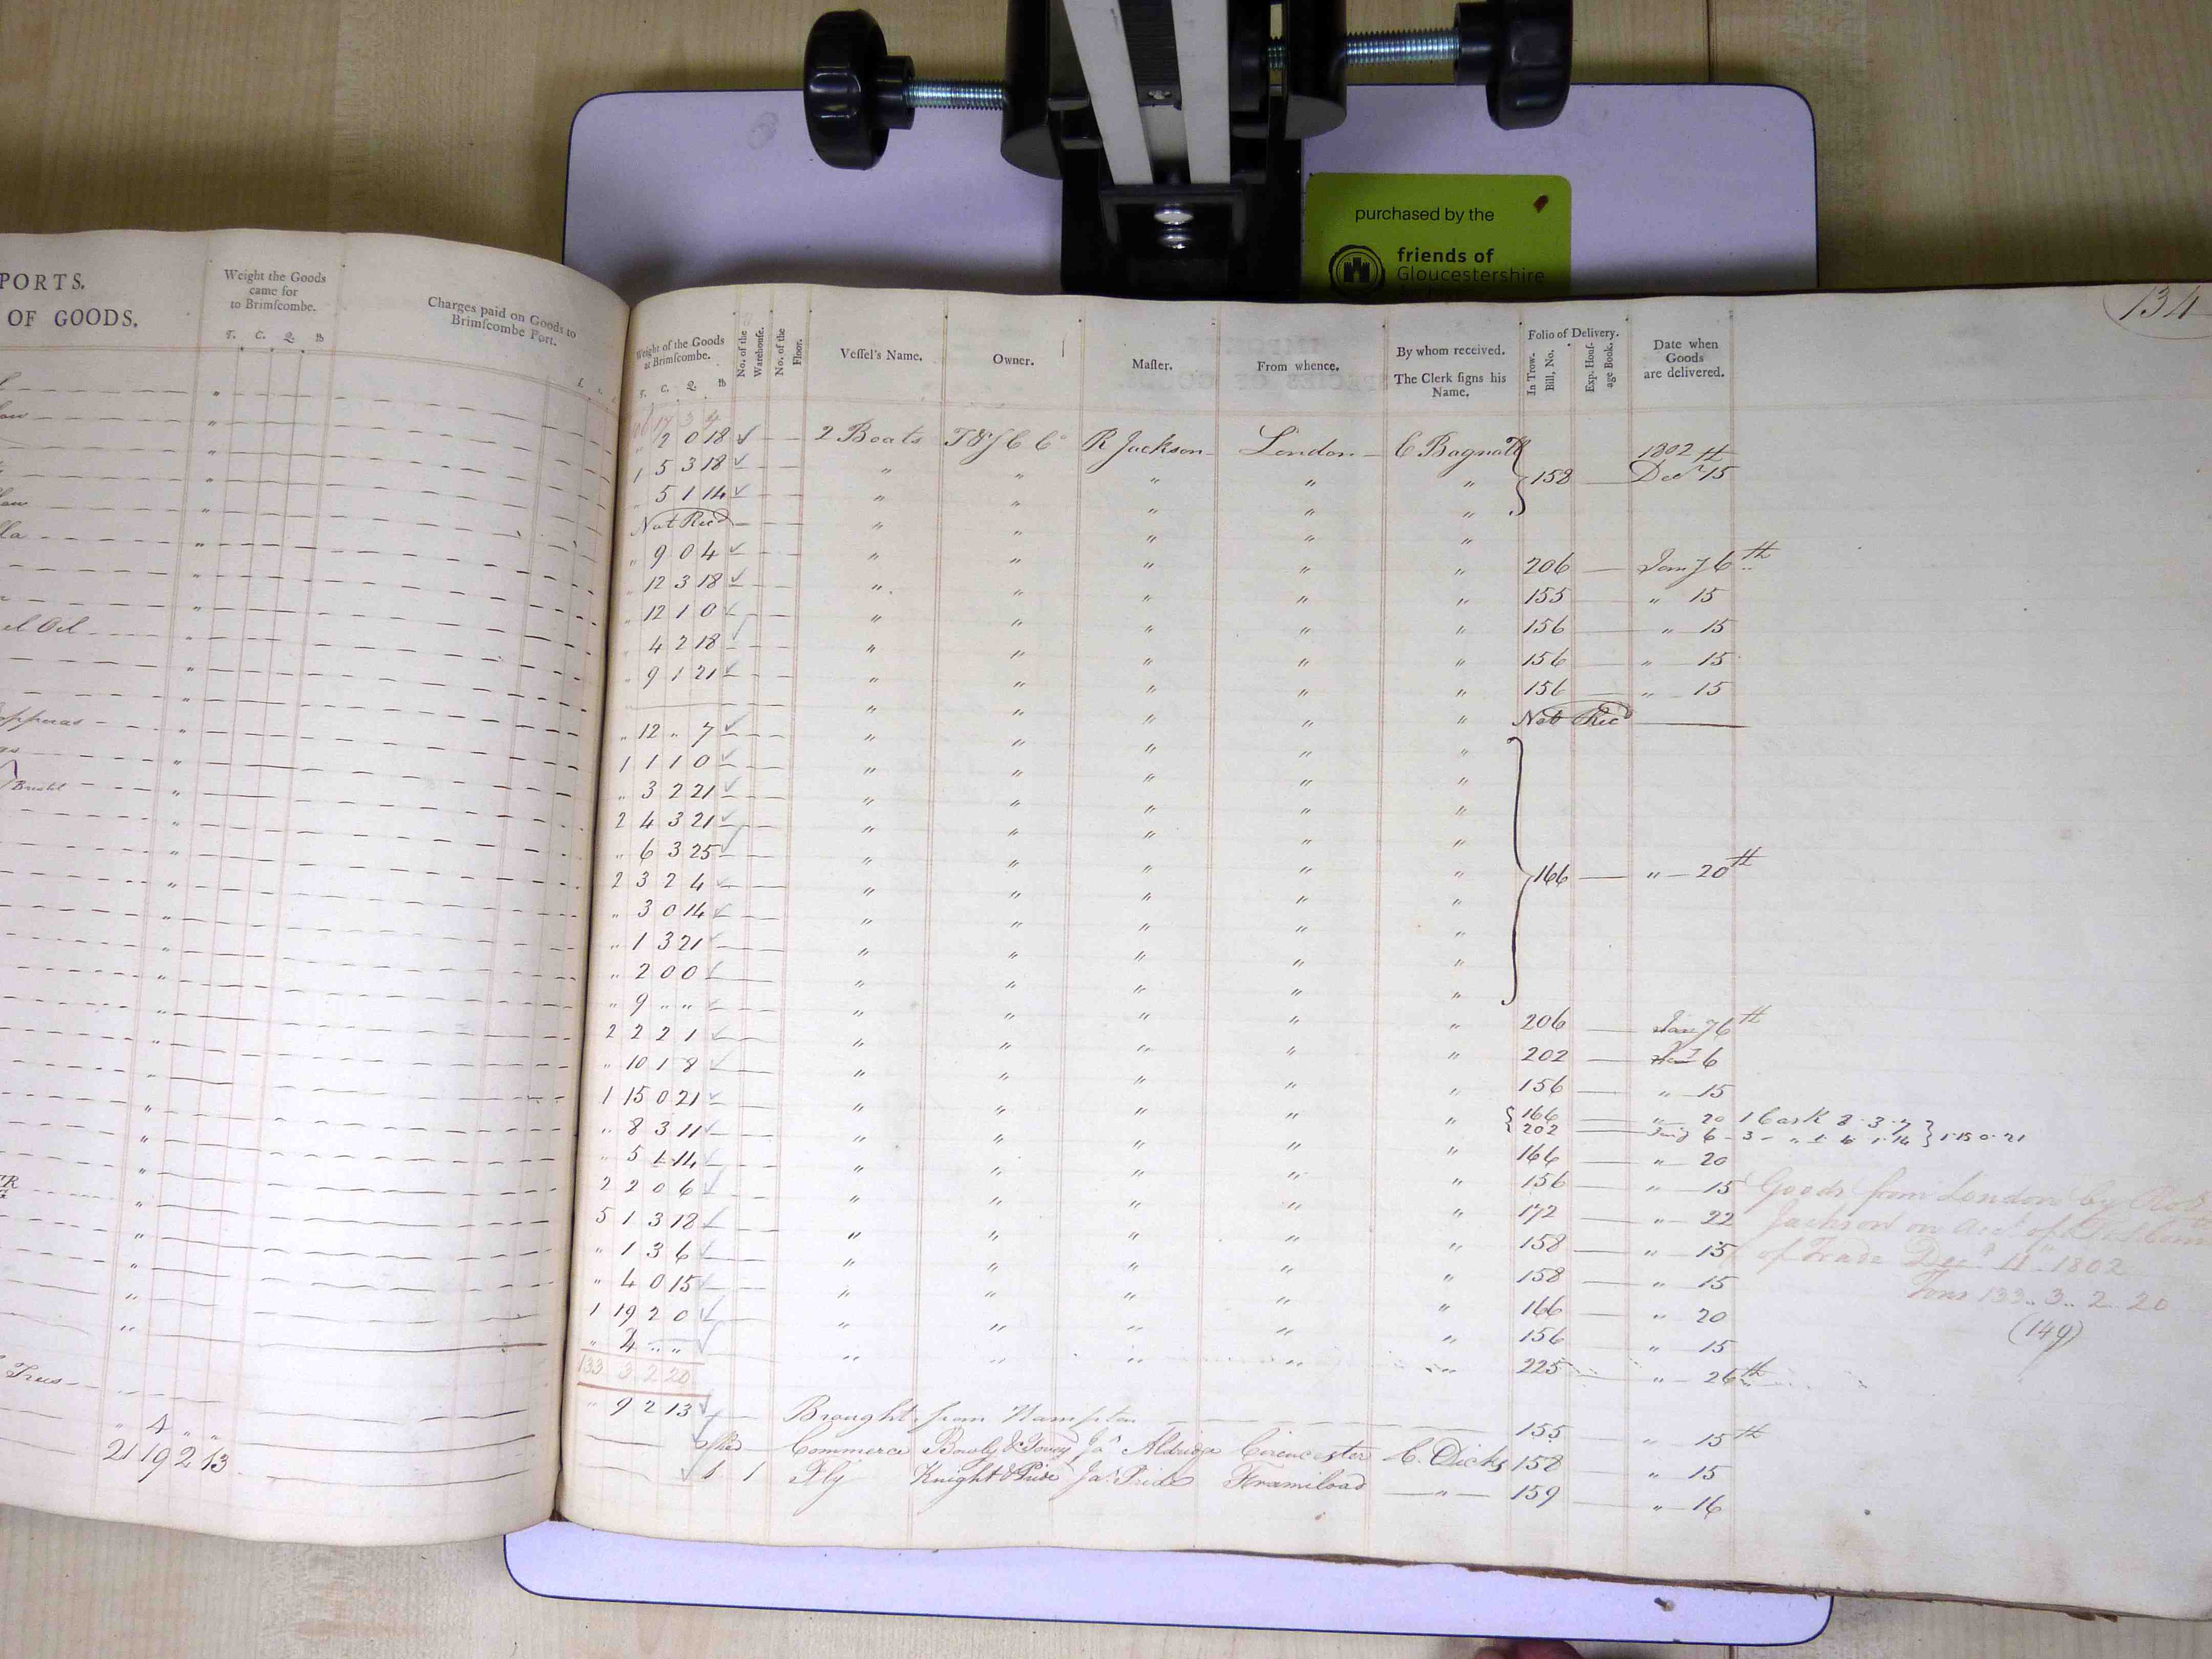 purchased by the
friends of
Gloucestershire
PORTS.
OF GOODS.
Weight the Goods
came for
to Brimſcombe.
T. C. Q. lb
Charges paid on Goods to
Brimſcombe Port.
el Oil
opperas
Bristol
Trus
" 4 " "
21 19 2 13
134
Weight of the Goods
at Brimſcombe.
T. C. Q. lb
No. of the
Warehouſe.
No. of the
Floor.
Veſſel's Name.
Owner.
Maſter.
From whence.
By whom received.
The Clerk ſigns his
Name.
Folio of Delivery.
In Trow.
Bill, No.
Exp. Houſ-
age Book.
Date when
Goods
are delivered.
" 2 0 18 2 Boats T & J C Co R Jackson London C Bagnall 1802
1 5 3 18 " " " " " 158 Decr 15th
" 5 1 14 " " " " "
Not Recd " " " " "
" 9 0 4 " " " " " 206 Jany 6th
" 12 3 18 " " " " " 155 " 15
" 12 1 0 " " " " " 156 " 15
" 4 2 18 " " " " " 156 " 15
" 9 1 21 " " " " " 156 " 15
" " " " " Not Recd
" 12 " 7 " " " " "
1 1 1 0 " " " " "
" 3 2 21 " " " " "
2 4 3 21 " " " " "
" 6 3 25 " " " " " 166 " 20th
2 3 2 4 " " " " "
" 3 0 14 " " " " "
" 1 3 21 " " " " "
" 2 0 0 " " " " "
" 9 " " " " " " " 206 Jany 6th
2 2 2 1 " " " " " 202 6
" 10 1 8 " " " " " 156 " 15
1 15 0 21 " " " " " 166 " 20 1 Cask 8.3.7
202 Jany 6 1.15.0.21
" 8 3 11 " " " " " 166 " 20
" 5 1 14 " " " " " 156 " 15
2 2 0 6 " " " " " 172 " 22
5 1 3 18 " " " " " 158 " 15
" 1 3 6 " " " " " 158 " 15
" 4 0 15 " " " " " 166 " 20
1 19 2 0 " " " " " 156 " 15
" 2 " " " " " " " 225 " 26th
133 3 2 20
Goods from London by Robt
Jackson on Acct of
of Trade Decr 11th 1802
Tons 133..3..2..20
(149)
" 9 2 13 Brought from Hampton 155 " 15th
Shed Commerce Bowly & Tovey Jas Aldridge Cirencester C. Dicks 158 " 15
1 1 Fly Knight & Pride Jas Pride Framiload " 159 " 16